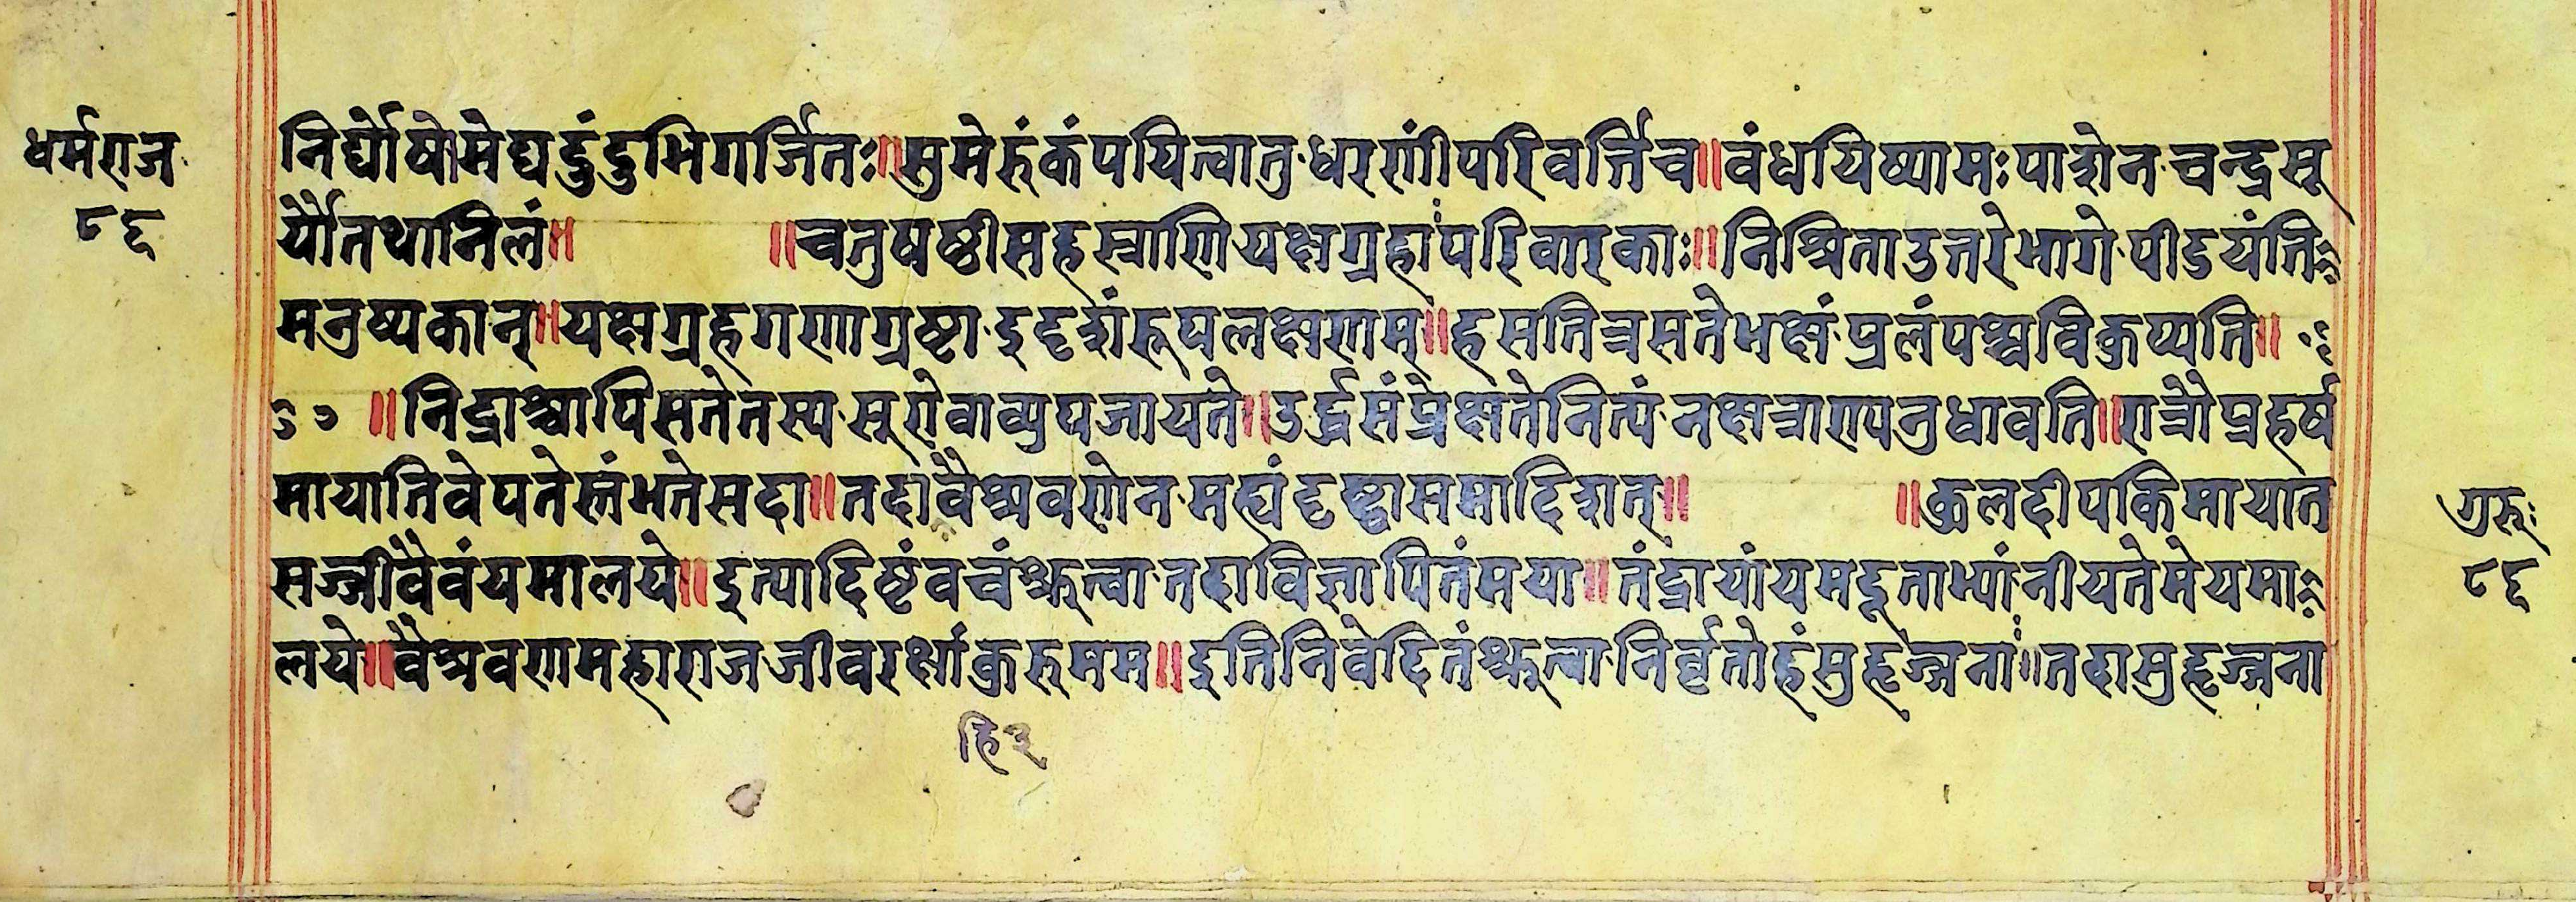 धर्मराज
८६
निर्घोषोमेघदुंदुभिगर्जितः॥सुमेरुंकंपयित्वातुधरणींपरिवर्त्तिच॥वंधयिष्यामःपाशेनचन्द्रसू
र्यौतथानिलं॥ ॥चतुषष्ठीसहस्राणियक्षग्रहाःपरिवारकाः॥निश्रिताउत्तरेभागेपीडयंति
मनुष्यकान्॥यक्षग्रहगणाग्रष्टाइदृशंरूपलक्षणम्॥हसतित्रसतेभक्षंप्रलंपश्चविकुप्यति॥
॥निद्राश्चापिसतेतस्यसूरोवाव्युपजायते॥उर्द्ध्वसंप्रेक्षतेनित्यंनक्षत्राण्यनुधावति॥रात्रौप्रहर्ष
मायातिवेपतेस्तंभतेसदा॥तदावैश्रवणेनमह्यंदृष्ट्वासमादिशत्॥ ॥कुलदीपकिमायात
सज्जीवैवंयमालये॥इत्यादिष्टंवचंश्रुत्वातदाविज्ञापितंमया॥तंद्रायांयमदूताभ्यांनीयतेमेयमा
लये॥वैश्रवणमहाराजजीवरक्षांकुरुमम॥इतिनिवेदितंश्रुत्वानिर्वृतोहंसुहृज्जनाः॥तदासुहृज्जना
हि३
गुरुः
८६